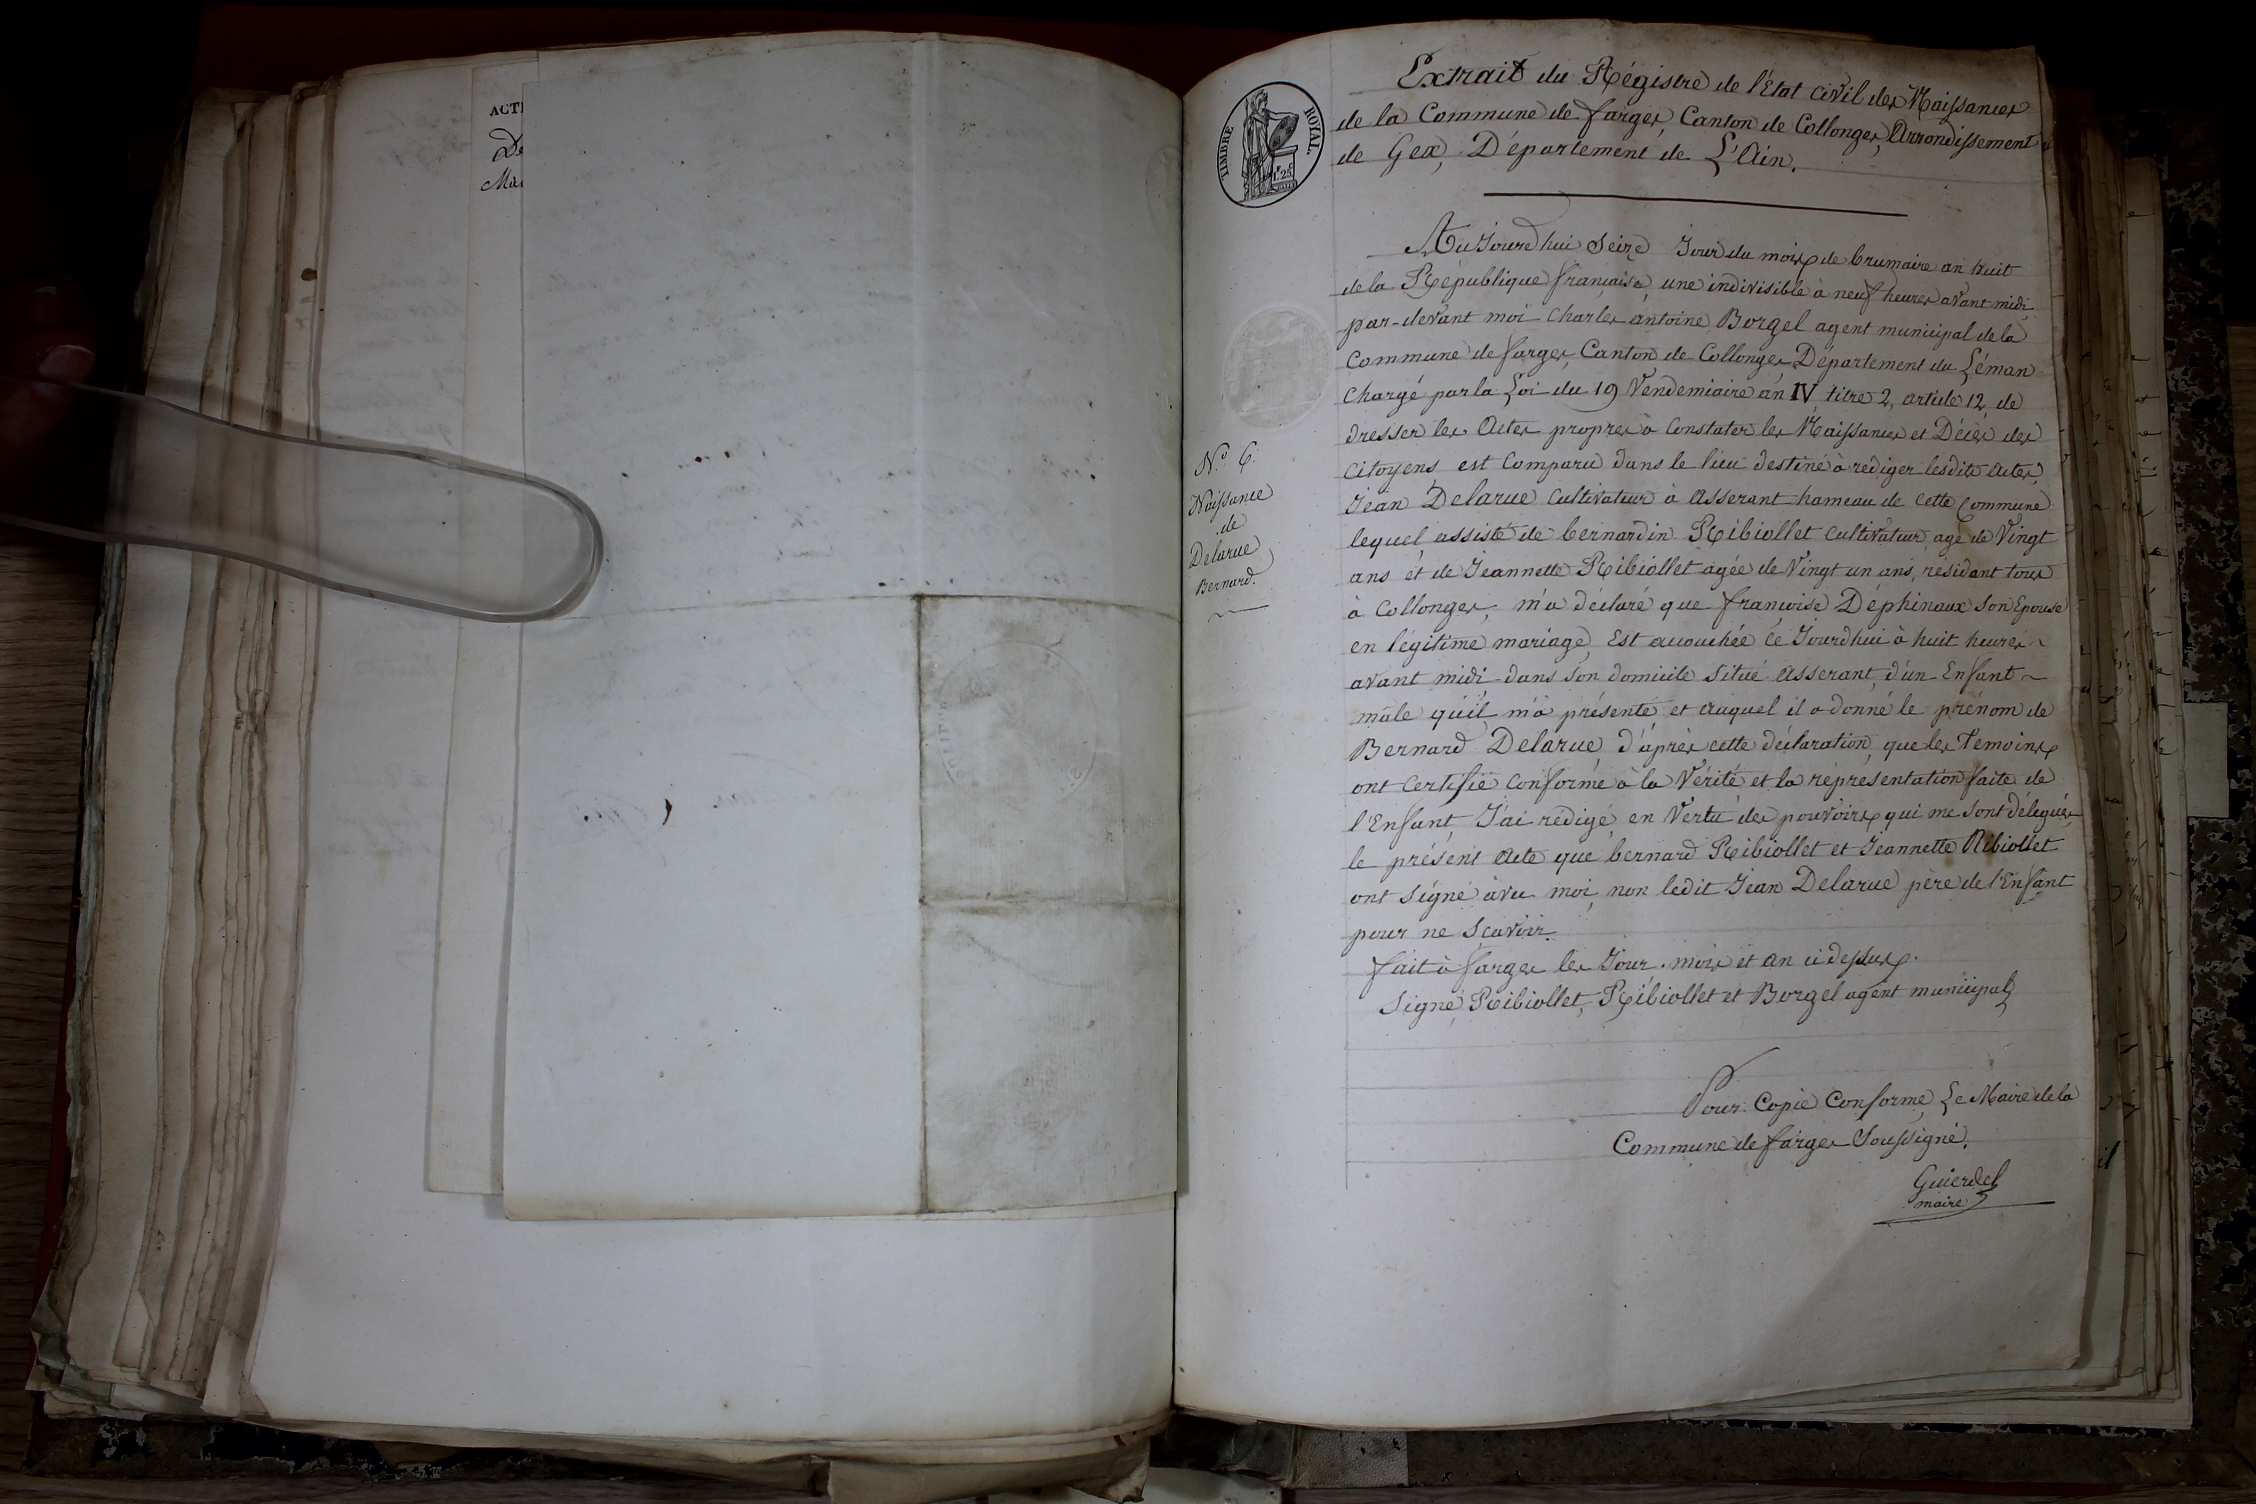 ACTE
De
Mar
TIMBRE ROYAL.
1F. 25C
Extrait du Régistre de l'Etat civil des Naissances
de la Commune de farges, Canton de Collonges, Arrondissement
de Gex, Département de L'Ain.
Nº 6.
Naissance
de
Delarue
Bernard.
AuJourd'hui Seize Jour du mois de brumaire an huit
de la République française, une indivisible à neuf heures avant midi
par-devant moi Charles antoine Borgel agent municipal de la
Commune de farges, Canton de Collonges Département du Léman
Chargé par la Loi du 19 Vendemiaire an IV titre 2, article 12, de
dresser les Actes propres à Constater les Naissances et Décès des
Citoyens est Comparu dans le lieu destiné à rediger lesdits actes,
Jean Delarue Cultivateur à Asserant hameau de cette Commune
lequel assisté de bernardin Ribiollet Cultivateur agé de Vingt
ans et de Jeannette Ribiollet agée de Vingt un ans, residant tous
à Collonges, m'a déclaré que françoise Déphinaux son Epouse
en légitime mariage, Est accouchée ce Jourdhui à huit heures
avant midi dans son domicile situé Asserant, d'un Enfant
mâle qu'il m'a présenté et auquel il a donné le prénom de
Bernard Delarue, d'après cette déclaration, que les Temoins
ont certifié conforme à la Vérité et la représentation faite de
l'Enfant, J'ai redigé en Vertu des pouvoirs qui me sont délegués
le présent acte que bernard Ribiollet et Jeannette Ribiollet
ont signé avec moi, non ledit Jean Delarue père de l'Enfant
pour ne Scavoir.
fait à farges les Jour, mois et an ci dessus.
Signé Ribiollet, Ribiollet et Borgel agent municipal
Pour Copie Conforme, Le Maire de la
Commune de farges Soussigné.
Guierdel
maire